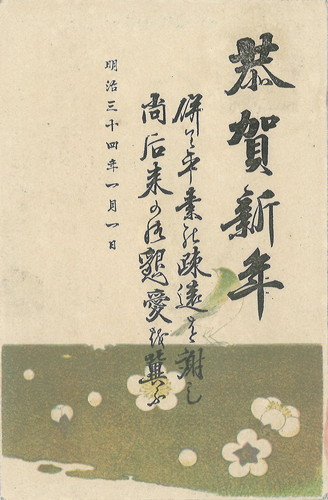 恭賀新年
併て平素の疎遠を謝し
尚后来の御懇愛を冀ふ
明治三十四年一月一日